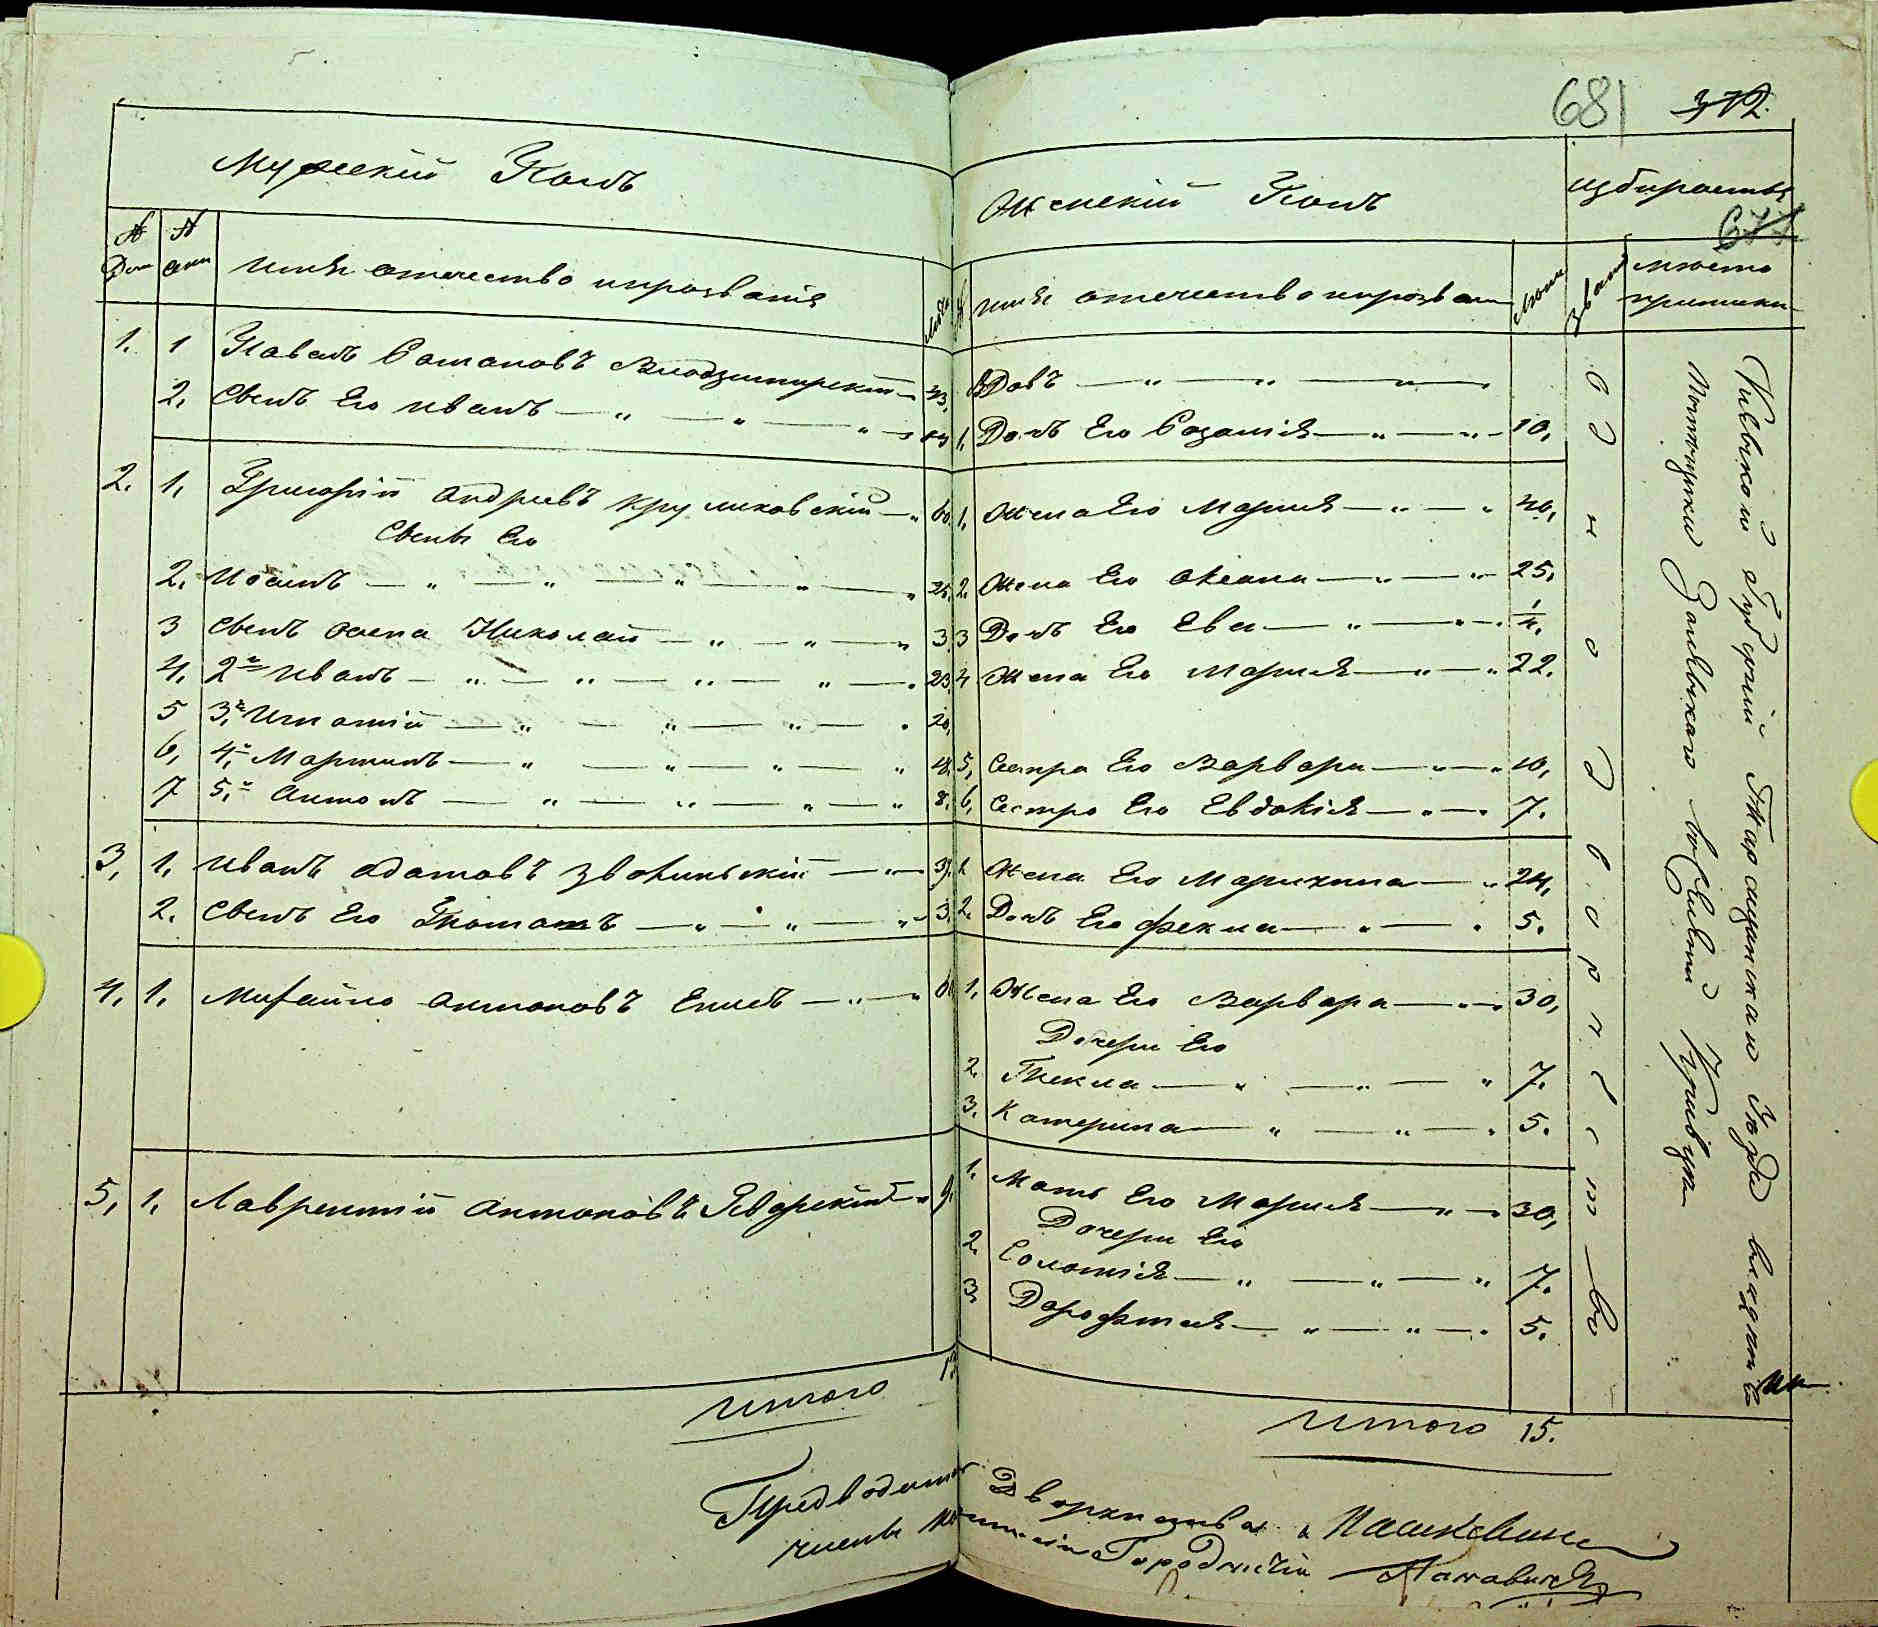 681 372.
Мужескій Полъ
Женскій Полъ
избираетъ
677
№ Дом
№
имя отечество и прозваніе
лета
№
имя отечество и прозван
лета
Зван
место приписки
1. 1 Павелъ Романовъ Влодзимирскій — 43,
вдовъ — " — " — " —
2. Сынъ Его Иванъ — " — " — "
1. Дочъ Его Розалія — " — " — 10,
2. 1. Григорій Андреевъ Круликовскій — " 60
1. Жена Его Марія — " — " 40,
Сыны Его
2. Иосипъ — " — " — " — " — " 25,
2. Жена Его Оксана — " — " — 25.
3 Сынъ Осипа Николай — " — " — " 3.
3 Дочъ Его Ева — " — " — 1/4.
4. 2й Иванъ — " — " — " — " — " 23
4 Жена Его Марія — " — " 22.
5 3й Игнатій — " — " — " — " 20,
6, 4й Мартинъ — " — " — " — "
5, Сестра Его Варвара — " — " 10,
7 5й Антонъ — " — " — " — " 8.
6, Сестра Его Евдокія — " — 7.
3, 1. Иванъ Адамовъ Звониньскій — " — 39.
1 Жена Его Маріянна — " 24,
2. Сынъ Его Томашъ — " — " — " 3.
2. Дочъ Его Фекла — " — " 5.
4, 1. Михайло Антоновъ — " — "
1, Жена Его Варвара — " — 30,
Дочери Его
2. Текля — " — " — " 7.
3. Катерина — " — " — " 5.
5, 1. Лаврентій Антоновъ Яворскій — " 9.
1. Мать Его Марія — " — 30,
Дочери Его
2. Соломія — " — " — " 7.
3. Дорофтея — " — " — " 5.
Однодворчество
Киевской Губерніи Таращанскаго Уезда владенія
Помещика Залевскаго в селеніи Кривца
итого
итого 15.
Предводитель Дворянства
члены Городничій